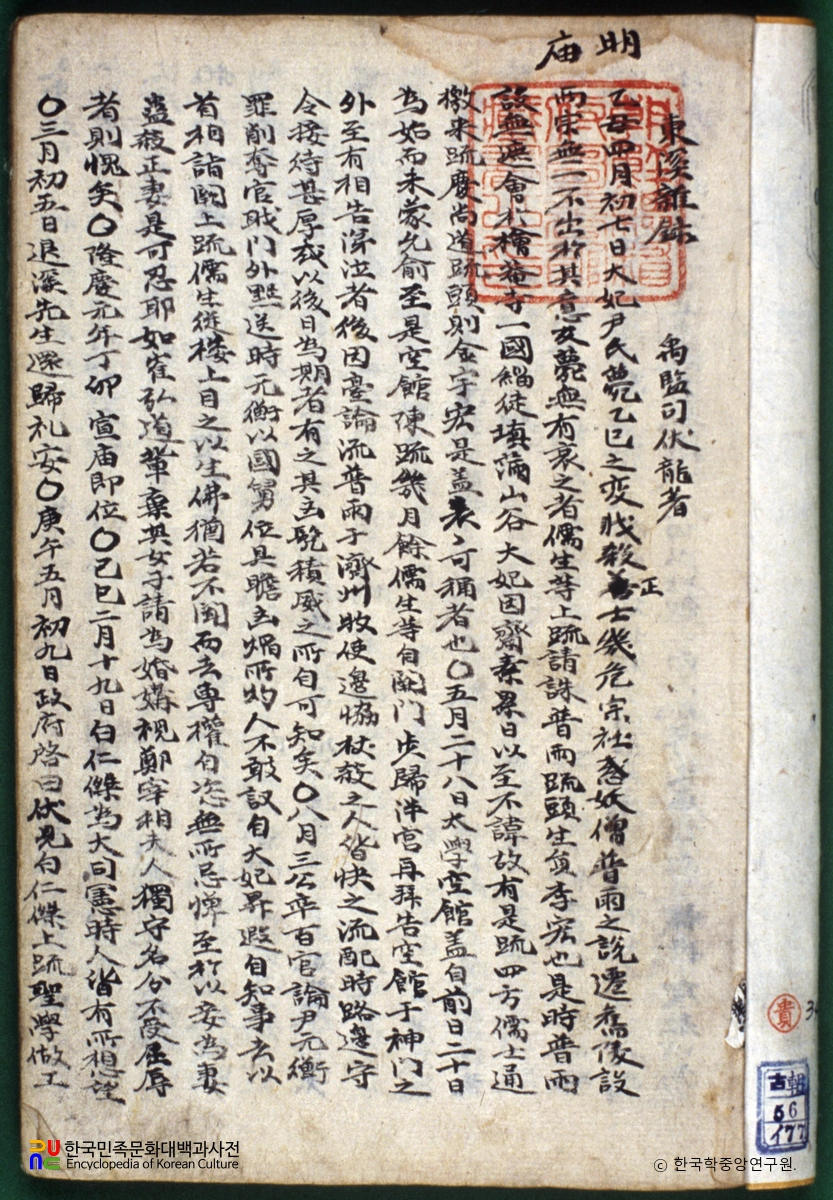 明
庙
東溪雜錄
禹監司伏龍著
乙丑四月初七日大妃尹氏薨乙巳之変戕殺善士幾危宗社惑妖僧普雨之說遷喬陵設
正
而崇無一不出於其意及薨無有哀之者儒生等上疏請誅普雨疏頭生負李宏也是時普雨
設無遮會於檜菴寺一國緇徒填滿山谷大妃因齋素累日以至不諱故有是疏四方儒士通
檄来疏慶尚道疏頭則金宇宏是盖表〻可稱者也〇五月二十八日太學空館盖自前日二十日
為始而未蒙允俞至是空館陳疏幾月餘儒生等自闕門步歸泮宮再拜告空館于神門之
外至有相告涕泣者後因臺論流普雨于濟州牧使邊協杖殺之人皆快之流配時路邊守
令接待甚厚或以後日為期者有之其玄髡積威之所自可知矣〇八月三公率百官論尹元衡
罪削奪官戝門外黜送時元衡以國舅位具瞻玄焰所灼人不敢议自大妃昇遐自知事去以
首相詣闕上疏儒生從樓上目之以生佛猶若不聞而去専權自恣無所忌惮至於以妾為妻
盗殺正妻是可忍耶如崔弘道輩棄其女子請為婚媾視鄭宰相夫人獨守名分不受屈辱
者則愧矣〇隆慶元年丁卯宣庙即位〇己巳二月十九日白仁傑為大司憲時人皆有所想望
〇三月初五日退溪先生還歸礼安〇庚午五月初九日政府啓曰伏見白仁傑上疏聖學做工
貴
古朝
56
177
한국민족문화대백과사전
Encyclopedia of Korean Culture
ⓒ 한국학중앙연구원.